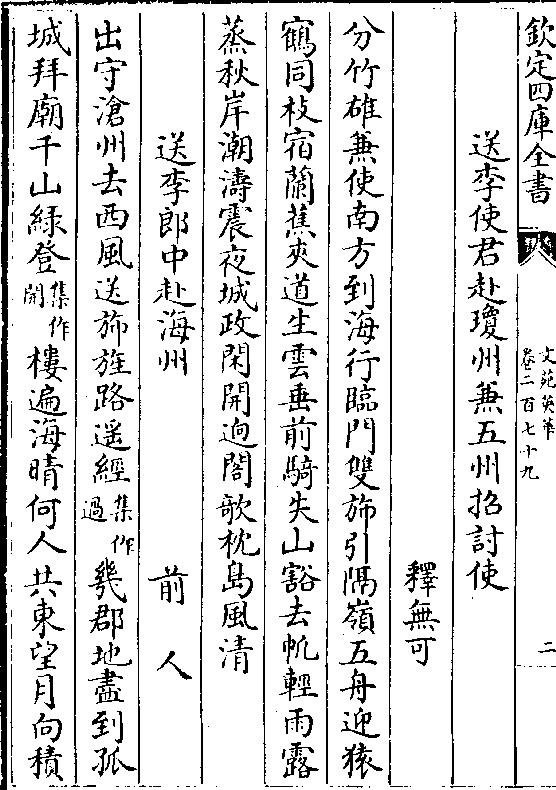 欽定四庫全書
文苑英華
卷二百七十九
二
送李使君赴瓊州兼五州招討使
釋無可
分竹雄兼使南方到海行臨門雙斾引隔嶺五舟迎猿
鶴同枝宿蘭蕉夾道生雲垂前騎失山豁去帆輕雨露
蒸秋岸潮濤震夜城政閑開逈閣歌枕島風清
送李郎中赴海州
前人
出守滄州去西風送斾旌路遥經集作過幾郡地盡到孤
城拜廟千山緑登集作開樓遍海晴何人共東望月向積